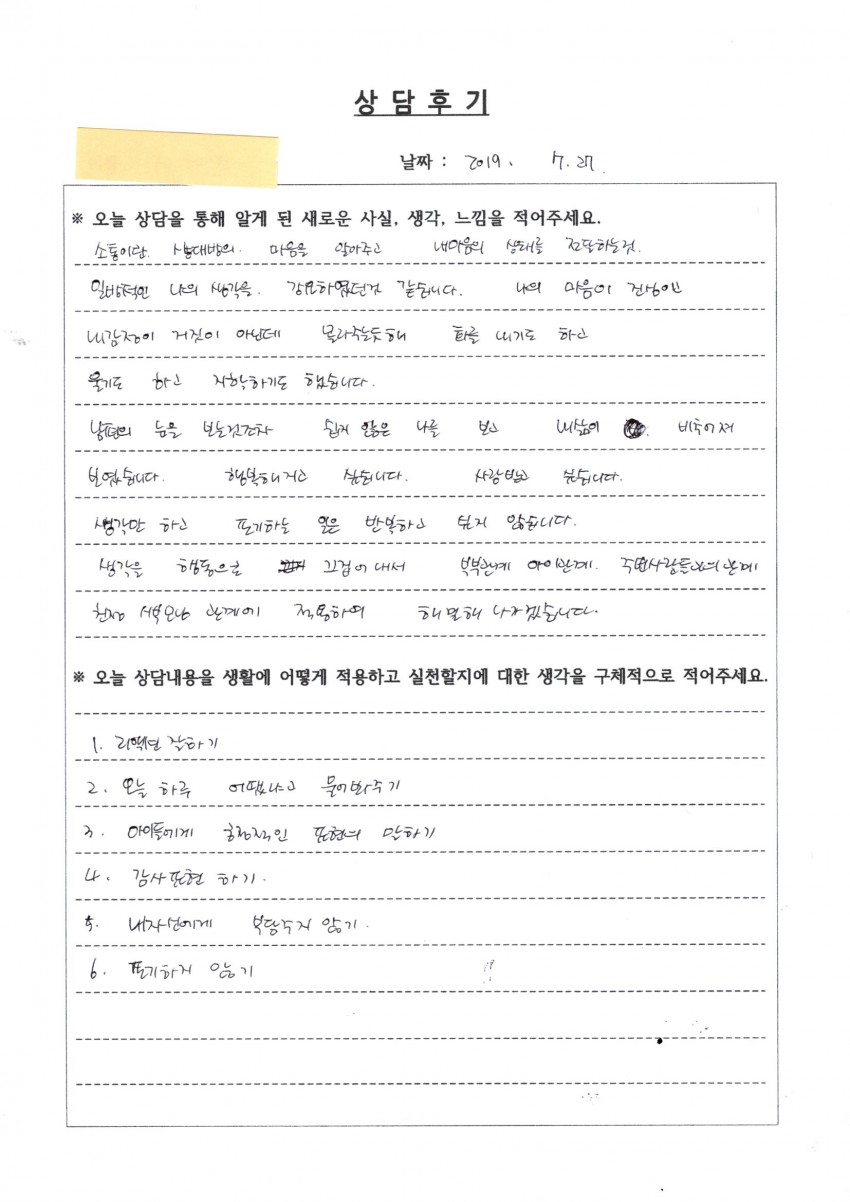 상 담 후 기
날짜 : 2019. 7. 27.
※ 오늘 상담을 통해 알게 된 새로운 사실, 생각, 느낌을 적어주세요.
소통이란 상대방의 마음을 알아주고 내마음의 상태를 전달하는것.
일방적인 나의 생각을. 강요하였던것 같습니다. 나의 마음이 진심이고
내감정이 거짓이 아닌데 몰라주는듯해 화를 내기도 하고
울기도 하고 자학하기도 했습니다.
남편의 눈을 보는것조차 쉽지 않은 나를 보고 내삶이 비추어져
보였습니다. 행복해지고 싶습니다. 사랑받고 싶습니다.
생각만 하고 포기하는 일은 반복하고 싶지 않습니다.
생각을 행동으로 끄집어내서 부부관계 아이관계. 주변사람들과의 관계
친정 시부모님 관계에 적용하여 해결해 나가겠습니다.
※ 오늘 상담내용을 생활에 어떻게 적용하고 실천할지에 대한 생각을 구체적으로 적어주세요.
1. 리액션 잘하기
2. 오늘 하루 어땠냐고 물어봐주기
3. 아이들에게 긍정적인 표현의 말하기
4. 감사표현 하기.
5. 내자신에게 부담주지 않기.
6. 포기하지 않기